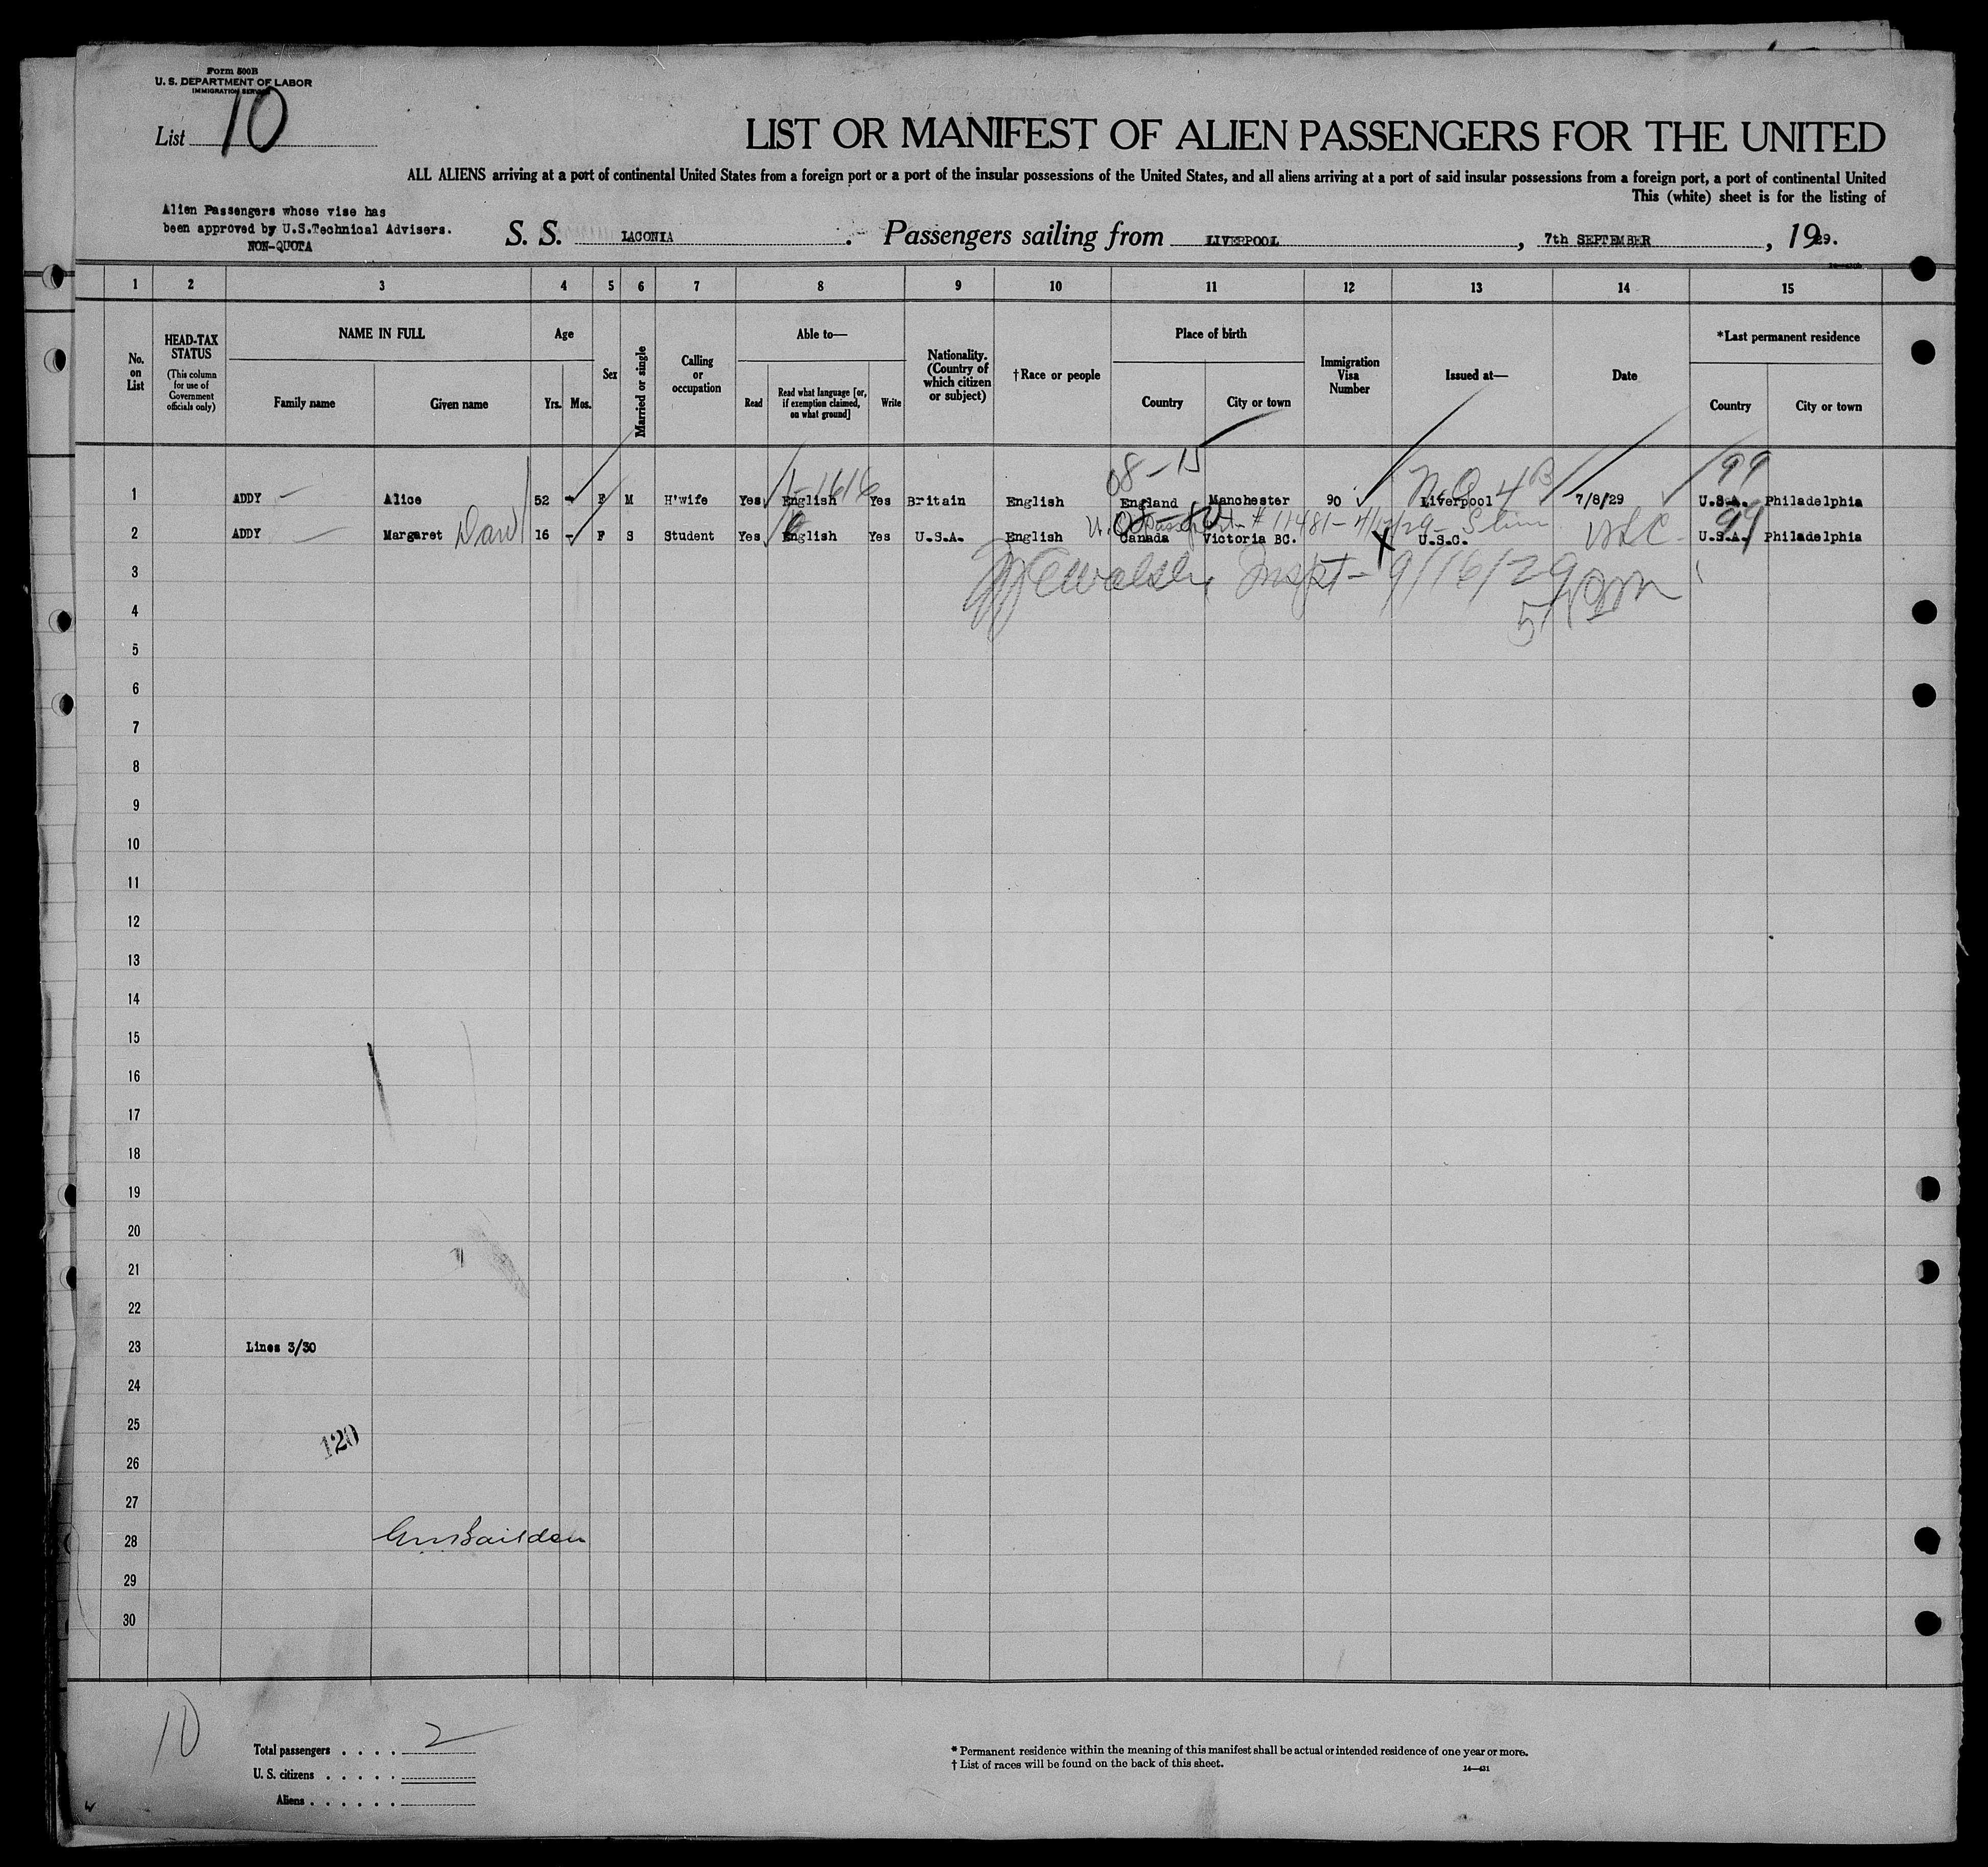 Form 500B
U. S. DEPARTMENT OF LABOR
IMMIGRATION SERVICE
List 10
LIST OR MANIFEST OF ALIEN PASSENGERS FOR THE UNITED
ALL ALIENS arriving at a port of continental United States from a foreign port or a port of the insular possessions of the United States, and all aliens arriving at a port of said insular possessions from a foreign port, a port of continental United
This (white) sheet is for the listing of
Alien Passengers whose vise has
been approved by U.S.Technical Advisers.
NON-QUOTA
S. S. LACONIA. Passengers sailing from LIVERPOOL, 7th SEPTEMBER, 1929.
1 2 3 4 5 6 7 8 9 10 11 12 13 14 15
No. on List
HEAD-TAX STATUS (This column for use of Government officials only)
NAME IN FULL
Family name
Given name
Age
Yrs. Mos.
Sex
Married or single
Calling or occupation
Able to—
Read
Read what language [or, if exemption claimed, on what ground]
Write
Nationality. (Country of which citizen or subject)
†Race or people
Place of birth
Country
City or town
Immigration Visa Number
Issued at—
Date
*Last permanent residence
Country
City or town
08-15 99
1-1616 N.Q 4B
1 ADDY Alice 52 - F M H'wife Yes English Yes Britain English England Manchester 90 Liverpool 7/8/29 U.S.A. Philadelphia
Passport # 11481 99
2 ADDY Margaret 16 - F S Student Yes English Yes U.S.A. English Canada Victoria BC. X U.S.C. U.S.A. Philadelphia
3
Inspt - 9/16/29
4
5
6
7
8
9
10
11
12
13
14
15
16
17
18
19
20
21
22
23 Lines 3/30
24
25
120
26
27
28
29
30
10
Total passengers . . . . 2
U. S. citizens . . . . .
Aliens . . . . . .
* Permanent residence within the meaning of this manifest shall be actual or intended residence of one year or more.
† List of races will be found on the back of this sheet.
14—431